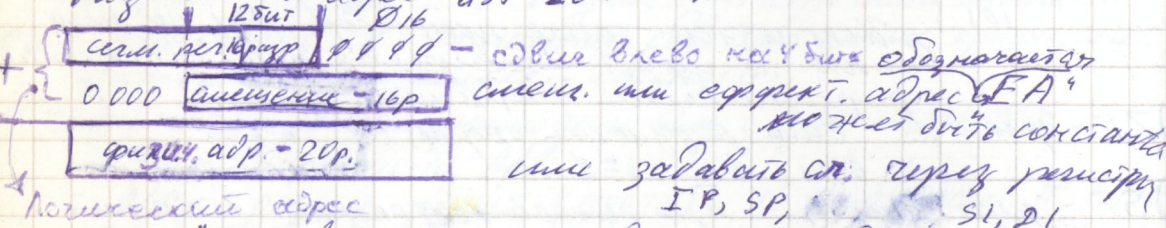 12 бит 016
+ сегм. рег. 16 разр 0 0 0 0 - сдвиг влево на 4 бита обозначается
0 000 смещение - 16р смещ. или еффект. адрес "EA"
может быть константа
физич. адр. - 20р.
или задавать см. через регистры
IP, SP, SI, DI
Логический адрес